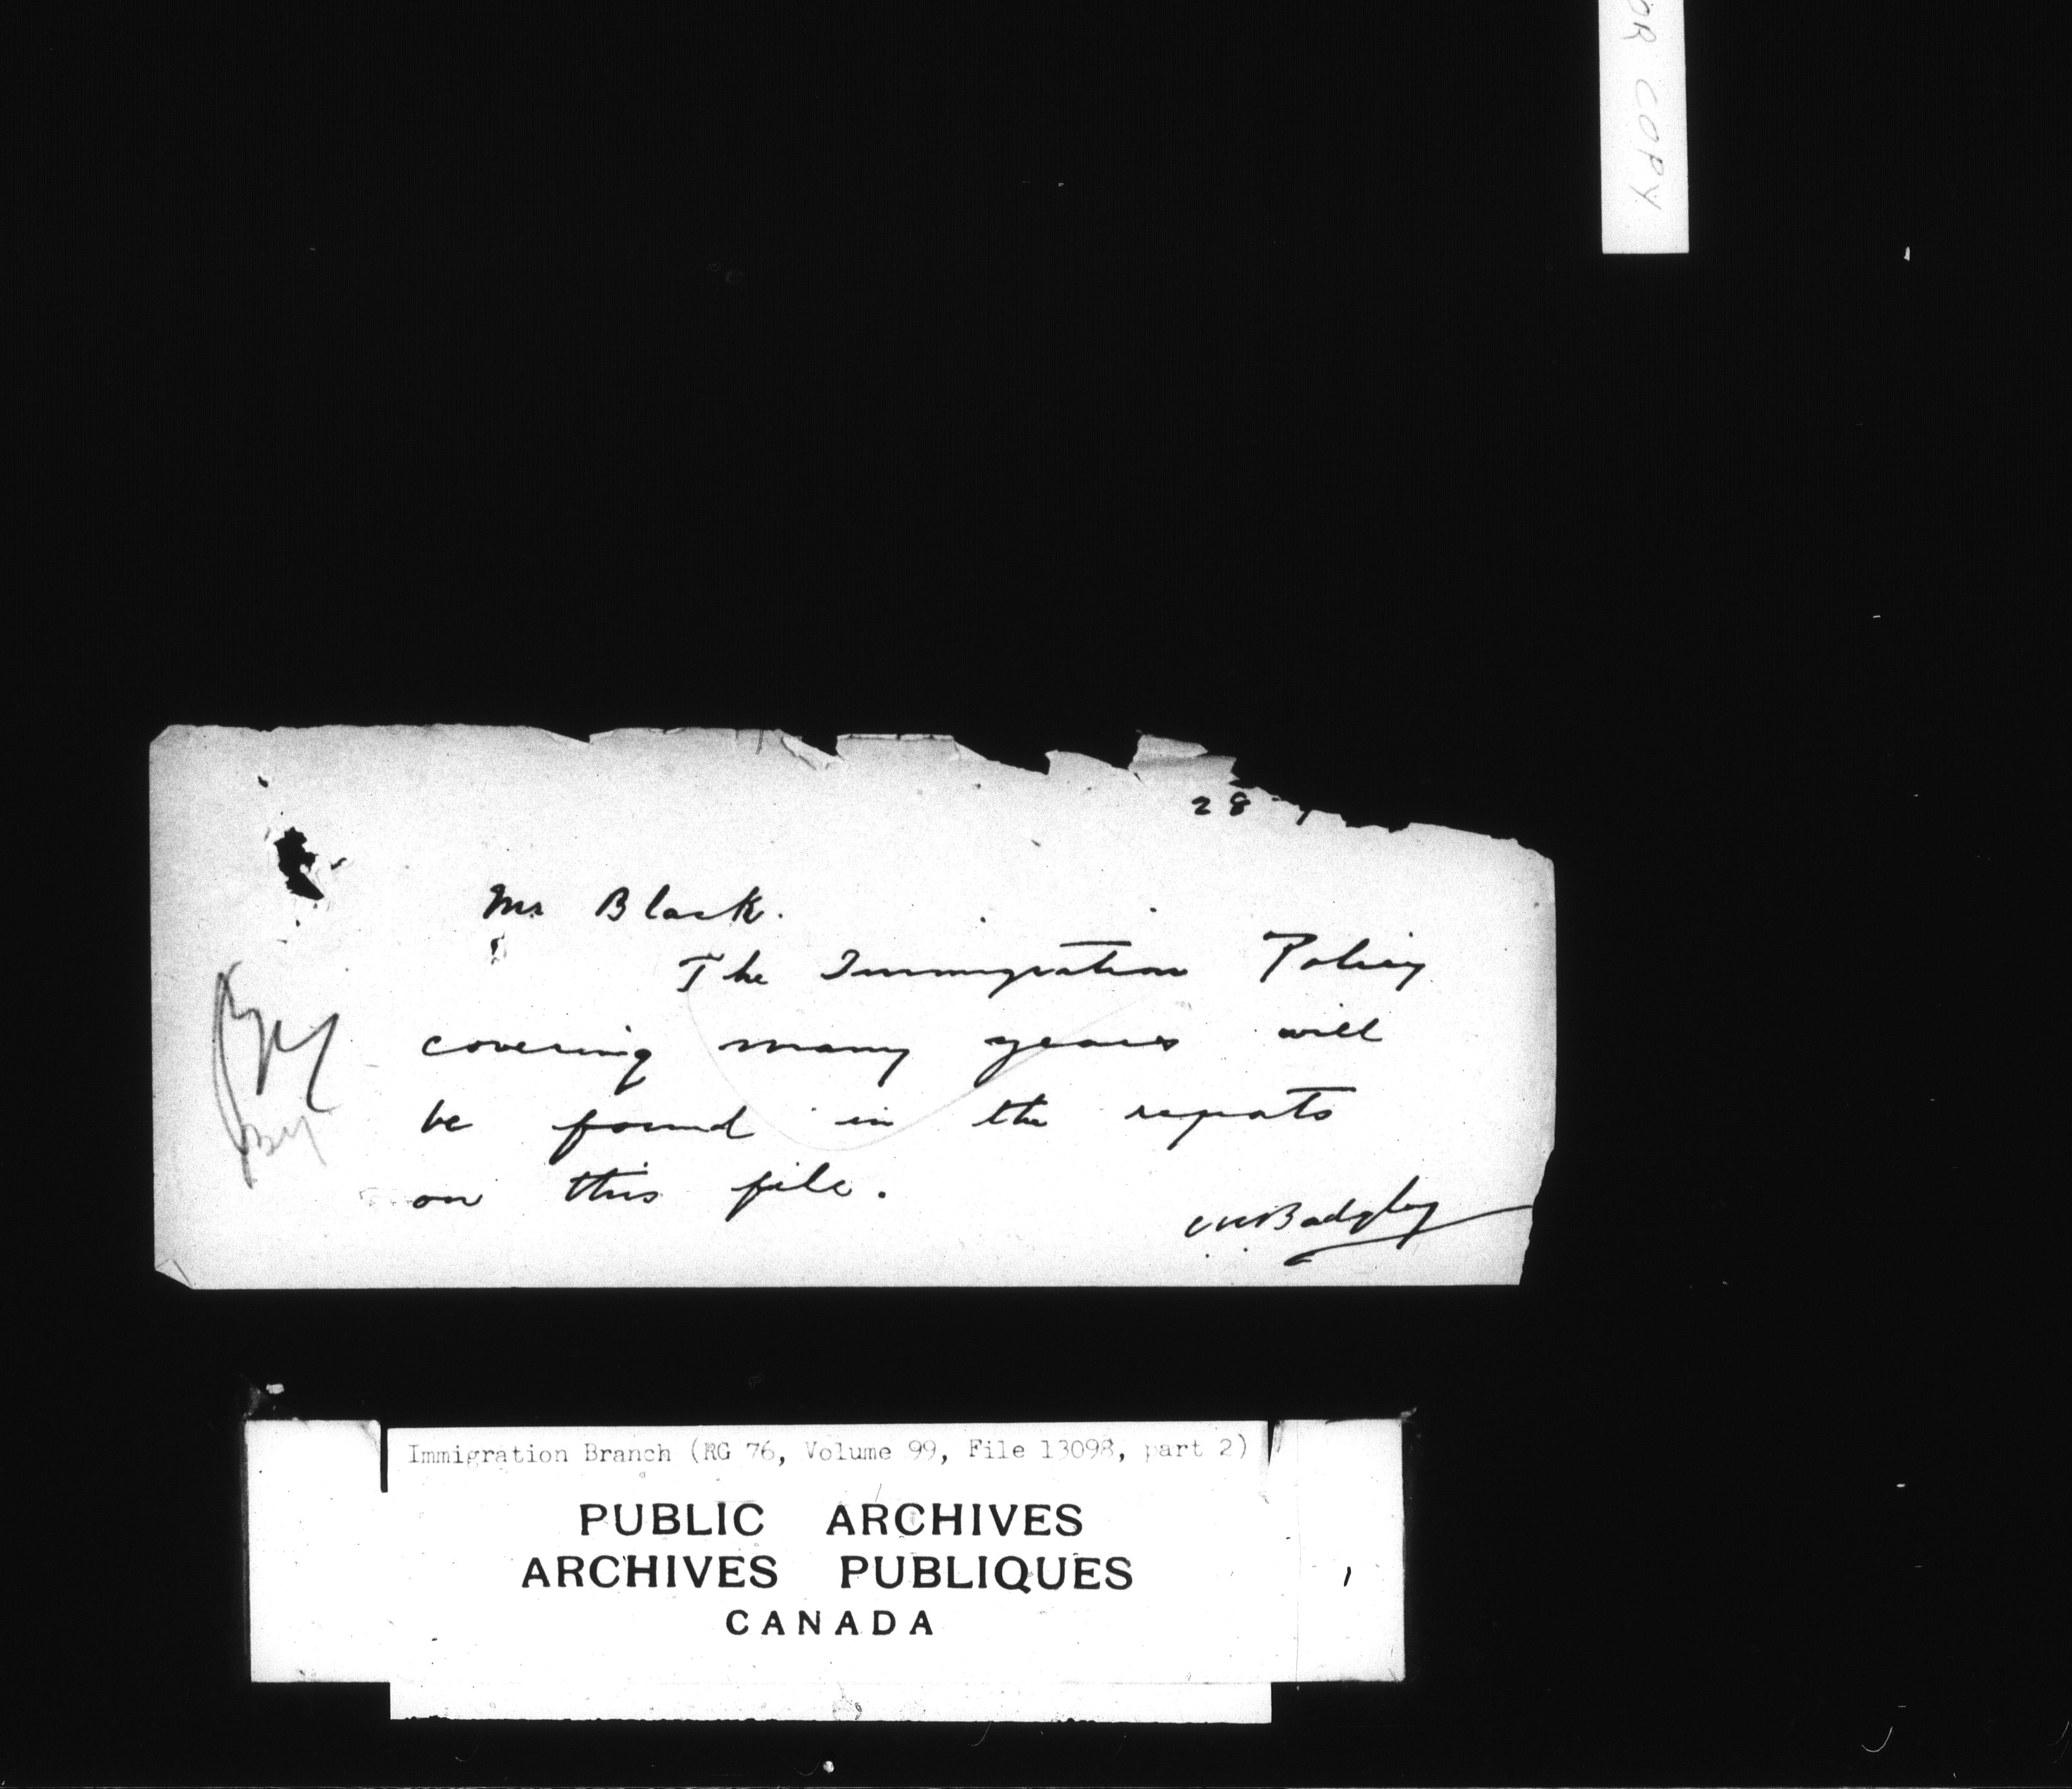 OR COPY
28
Mr Black.
The Immigration Policy
covering many years will
be found in the reports
on this file.
Badgley
Immigration Branch (RG 76, Volume 99, File 13098, part 2)
PUBLIC ARCHIVES
ARCHIVES PUBLIQUES
CANADA